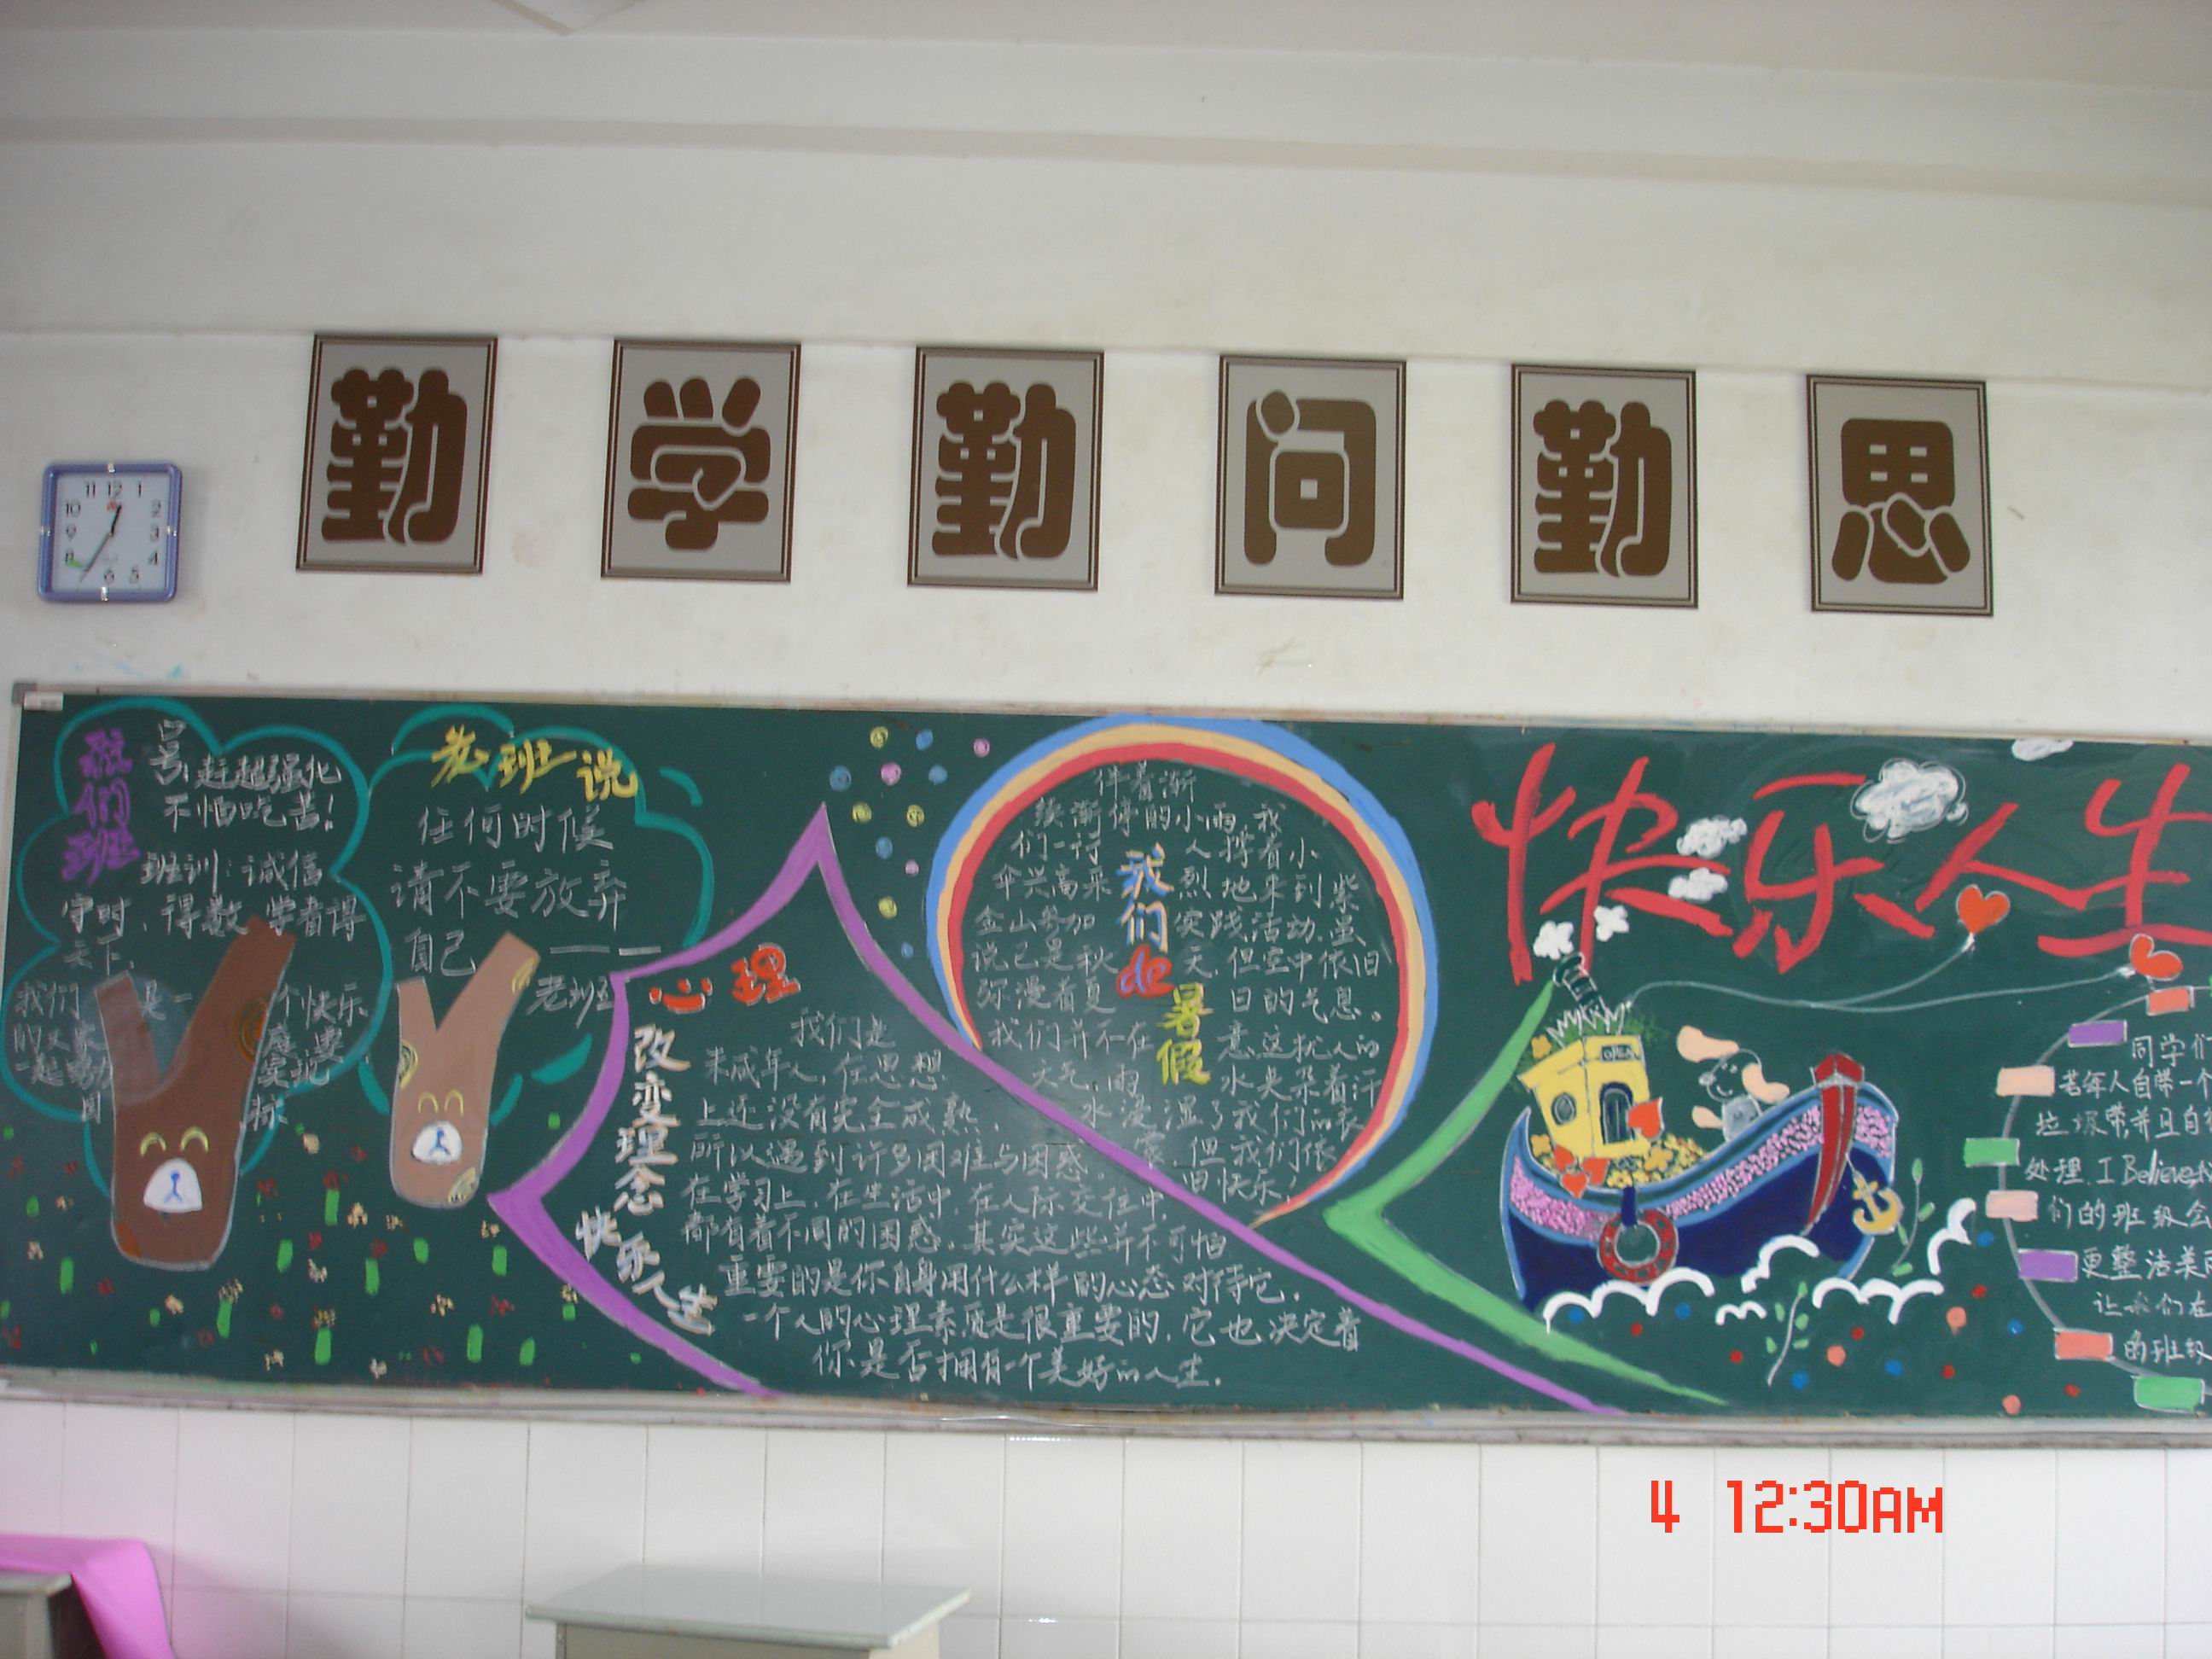 勤学勤问勤思
11 12 1
10 2
9 3
8 4
6 5
我们班
赶超强化
不怕吃苦!
班训:诚信
守时,得数学者得
天下.
我们是一个快乐
老班说
任何时候
请不要放弃
自己——
老班
心理
改变理念
快乐人生
我们是
未成年人,在思想
上还没有完全成熟,
所以遇到许多困难与困惑.
在学习上,在生活中,在人际交往中,
都有着不同的困惑,其实这些并不可怕
重要的是你自身用什么样的心态对待它.
一个人的心理素质是很重要的,它也决定着
你是否拥有一个美好的人生.
我们的暑假
伴着渐
渐停的小雨,我
们一行人撑着小
伞兴高采烈地来到紫
金山参加实践活动.虽
说已是秋天,但空中依旧
弥漫着夏日的气息。
我们并不在意这扰人的
水夹杂着汗
水浸湿了我们的衣
但我们依
旧快乐!
快乐人生
OPEN
同学们
若每人自带一个
垃圾带,并且自行
处理.I Believe
们的班级会
更整洁美丽
让我们在
的班级
4 12:30AM